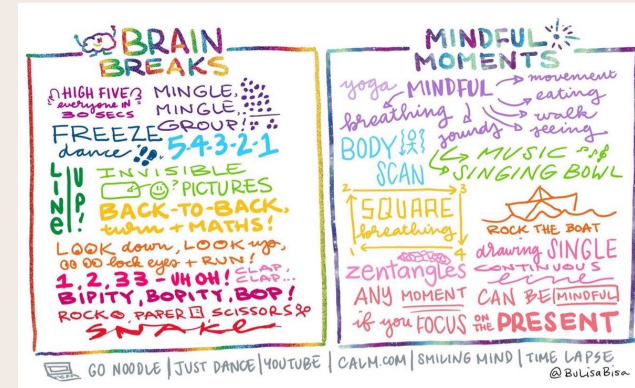 BRAIN
BREAKS
HIGH FIVE
everyone IN
30 SECS
MINGLE,
MINGLE,
GROUP!
FREEZE
dance
5-4-3-2-1
LINE
UP!
INVISIBLE
PICTURES
BACK-TO-BACK,
turn + MATHS!
LOOK down, LOOK up,
lock eyes + RUN!
1, 2, 33 - UH OH! CLAP,
CLAP...
BIPITY, BOPITY, BOP!
ROCK, PAPER, SCISSORS
SNAKE
MINDFUL
MOMENTS
yoga MINDFUL
movement
eating
walk
seeing
sounds
breathing
BODY
SCAN
MUSIC
SINGING BOWL
2 3
SQUARE
breathing
1 4
ROCK THE BOAT
zentangles
drawing SINGLE
CONTINUOUS
line
ANY MOMENT CAN BE MINDFUL
if you FOCUS ON THE PRESENT
GO NOODLE | JUST DANCE | YOUTUBE | CALM.COM | SMILING MIND | TIME LAPSE
@BuLisaBisa